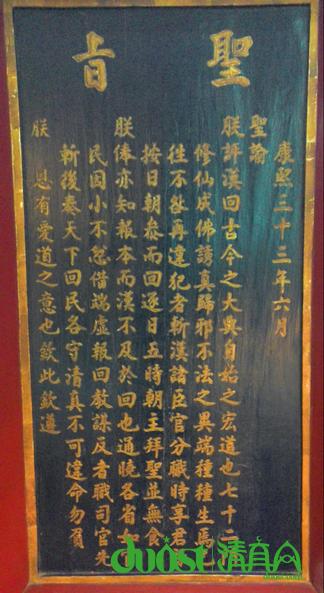 聖旨
康熙三十三年六月
聖諭
朕評漢回古今之大典自始之宏道也七十二
修仙成佛誘真歸邪不法之異端種種生焉
往不咎再違犯者斬漢諸臣官分職時享君
按日朝叅而回逐日五時朝王拜聖並無食
朕俸亦知報本而漢不及於回也通曉各省如
民因小不忿借端虛報回教謀反者職司官先
斬後奏天下回民各守清真不可違命勿負
朕 恩有愛道之意也欽此欽遵
duost